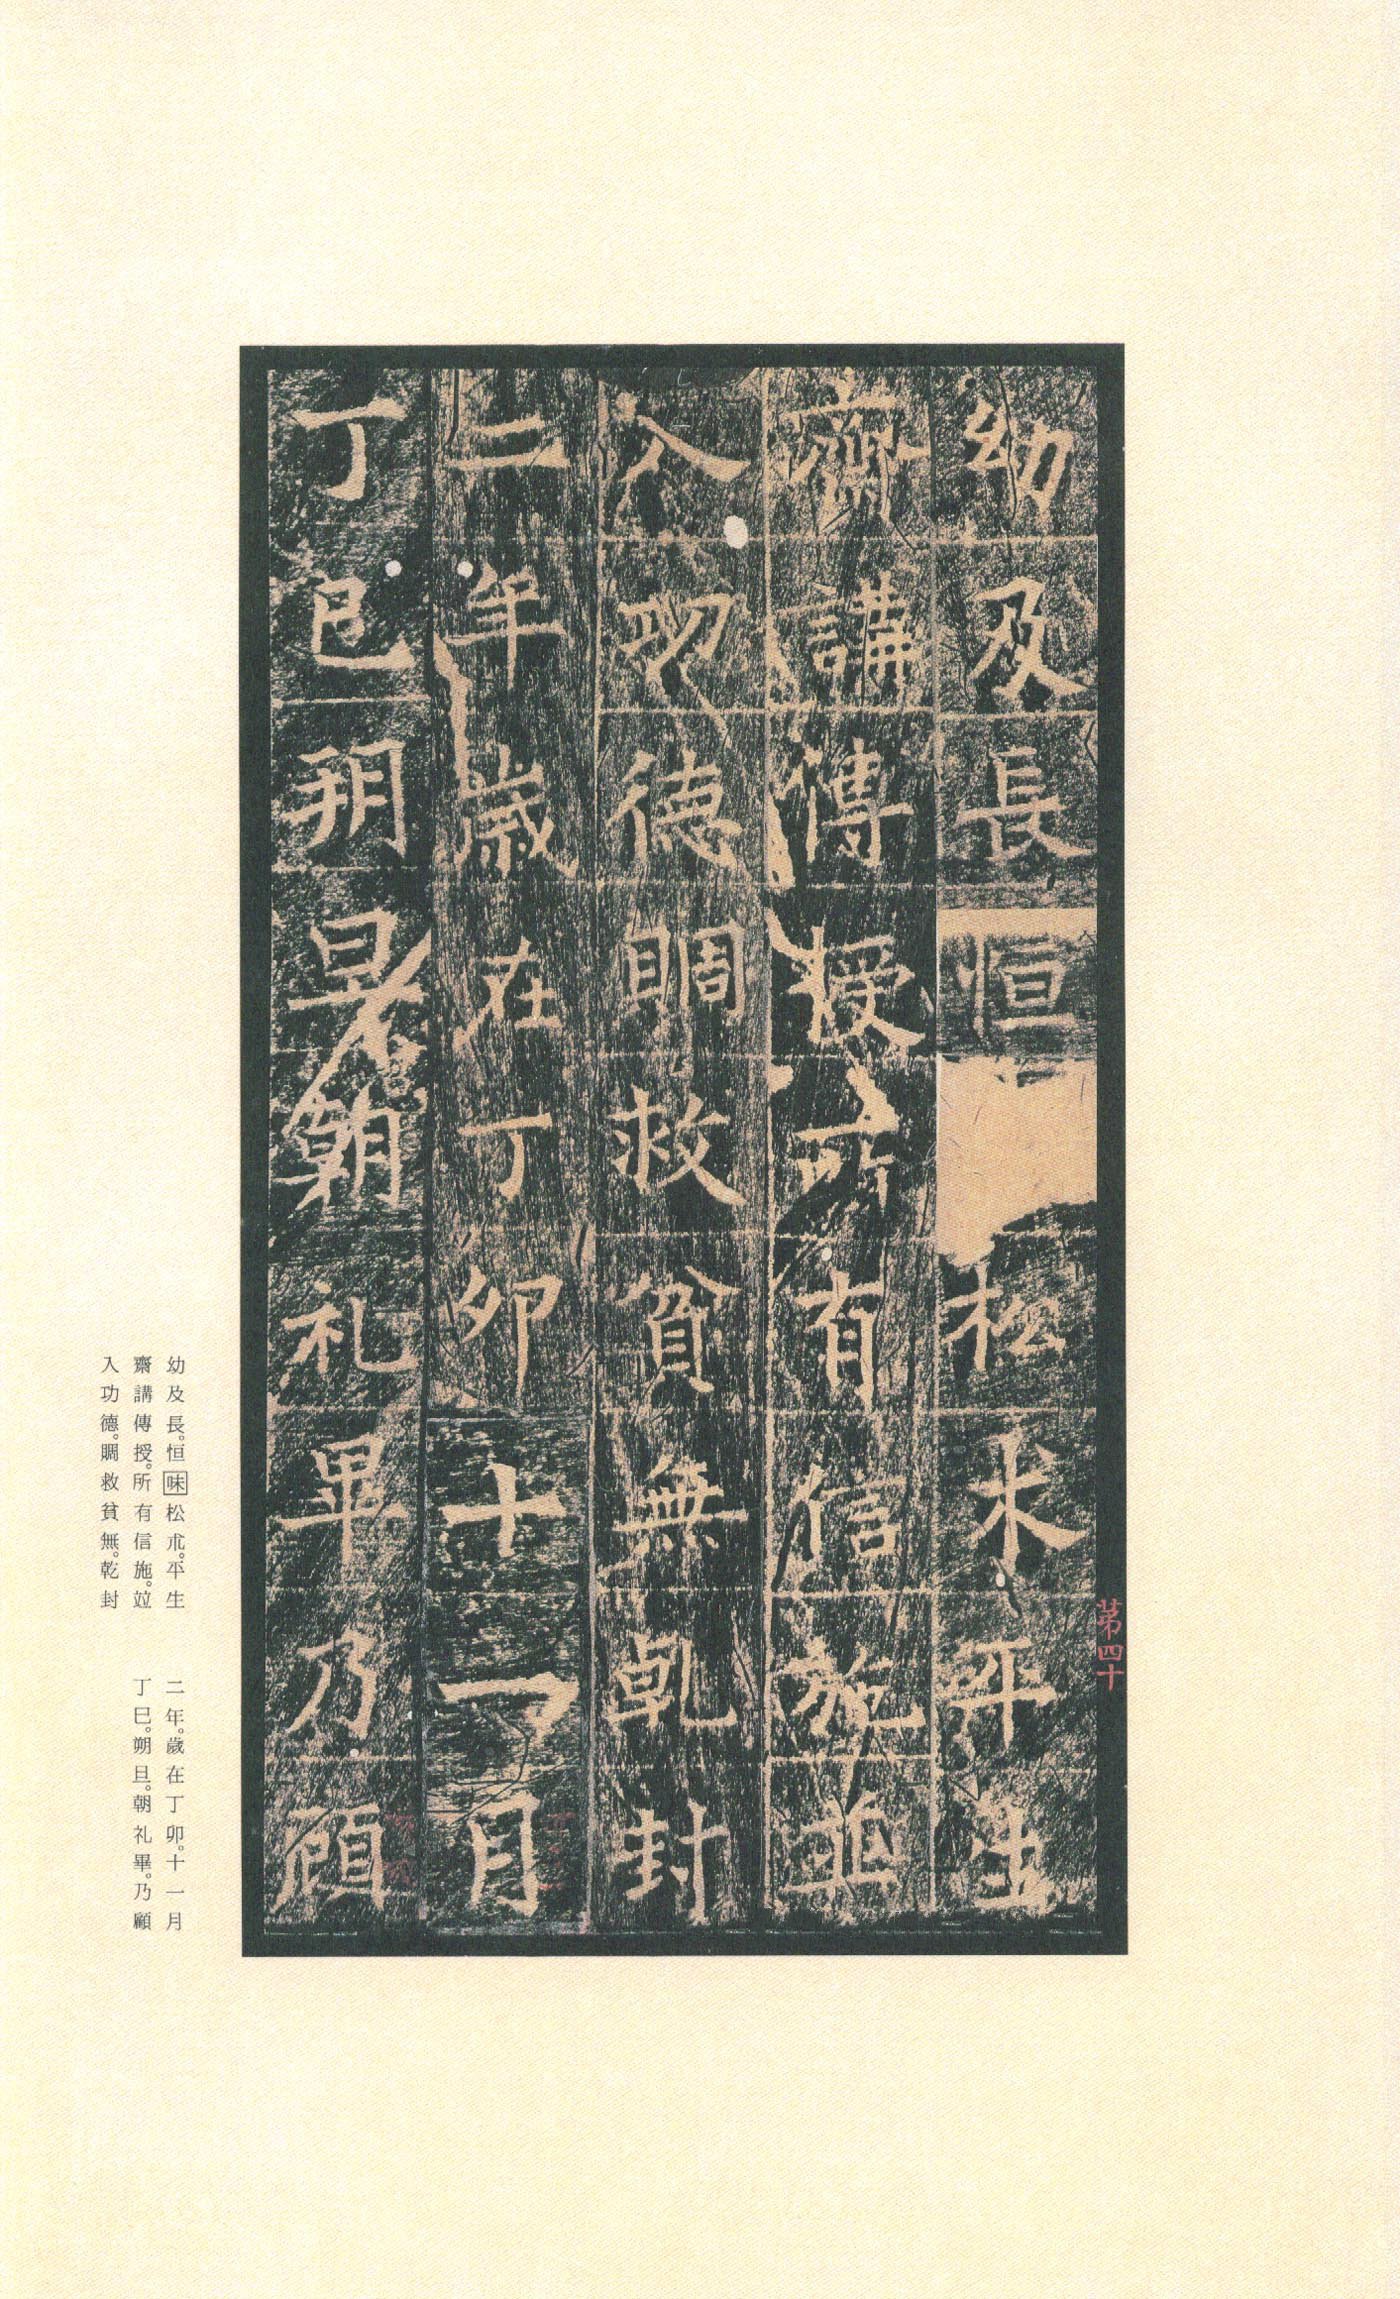 幼及長恒松朮平生
齋講傳授所有信施並
入功德賙救貧無乹封
二年歲在丁卯十一月
丁巳朔旦朝礼畢乃顧
第四十
幼及長。恒味松朮。平生
齋講傳授。所有信施。竝
入功德。賙救貧無。乾封
二年。歲在丁卯。十一月
丁巳。朔旦。朝礼畢。乃顧